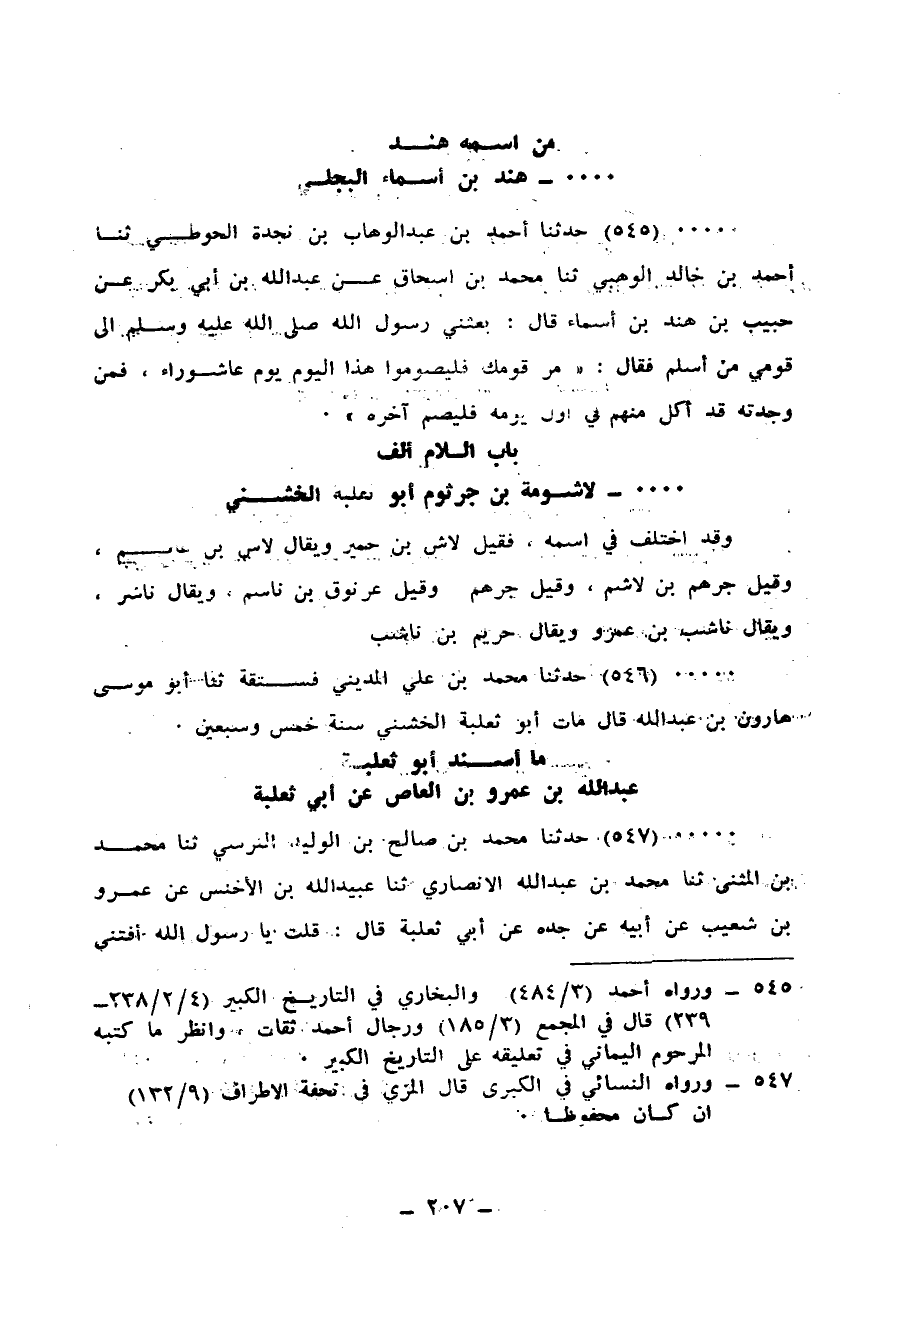 من اسمه هند
٠٠٠٠ ـ هند بن أسماء البجلي
٠٠٠٠٠ (٥٤٥) حدثنا أحمد بن عبدالوهاب بن نجدة الحوطي ثنا
أحمد بن خالد الوهبي ثنا محمد بن اسحاق عن عبدالله بن أبي بكر عن
حبيب بن هند بن أسماء قال : بعثني رسول الله صلى الله عليه وسلم الى
قومي من أسلم فقال : « مر قومك فليصوموا هذا اليوم يوم عاشوراء ، فمن
وجدته قد أكل منهم في اول يومه فليصم آخره » ٠
باب اللام ألف
٠٠٠٠ ـ لاشومة بن جرثوم أبو ثعلبة الخشني
وقد اختلف في اسمه ، فقيل لاش بن حمير ويقال لاس بن ،
وقيل جرهم بن لاشم ، وقيل جرهم وقيل عرنوق بن ناسم ، ويقال ناشر ،
ويقال ناشب بن عمرو ويقال حريم بن ناشب
٠٠٠٠٠ (٥٤٦) حدثنا محمد بن علي المديني فستقة ثنا أبو موسى
هارون بن عبدالله قال مات أبو ثعلبة الخشني سنة خمس وسبعين ٠
ما أسند أبو ثعلبة
عبدالله بن عمرو بن العاص عن أبي ثعلبة
٠٠٠٠٠ (٥٤٧) حدثنا محمد بن صالح بن الوليد النرسي ثنا محمد
بن المثنى ثنا محمد بن عبدالله الانصاري ثنا عبيدالله بن الأخنس عن عمرو
بن شعيب عن أبيه عن جده عن أبي ثعلبة قال : قلت يا رسول الله أفتني
٥٤٥ ـ ورواه أحمد (٤٨٤/٣) والبخاري في التاريخ الكبير (٢٣٨/٢/٤ـ
٢٣٩) قال في المجمع (١٨٥/٣) ورجال أحمد ثقات ، وانظر ما كتبه
المرحوم اليماني في تعليقه على التاريخ الكبير ٠
٥٤٧ ـ ورواه النسائي في الكبرى قال المزي في تحفة الاطراف (١٣٢/٩)
ان كان محفوظا ٠
ـ ٢٠٧ ـ